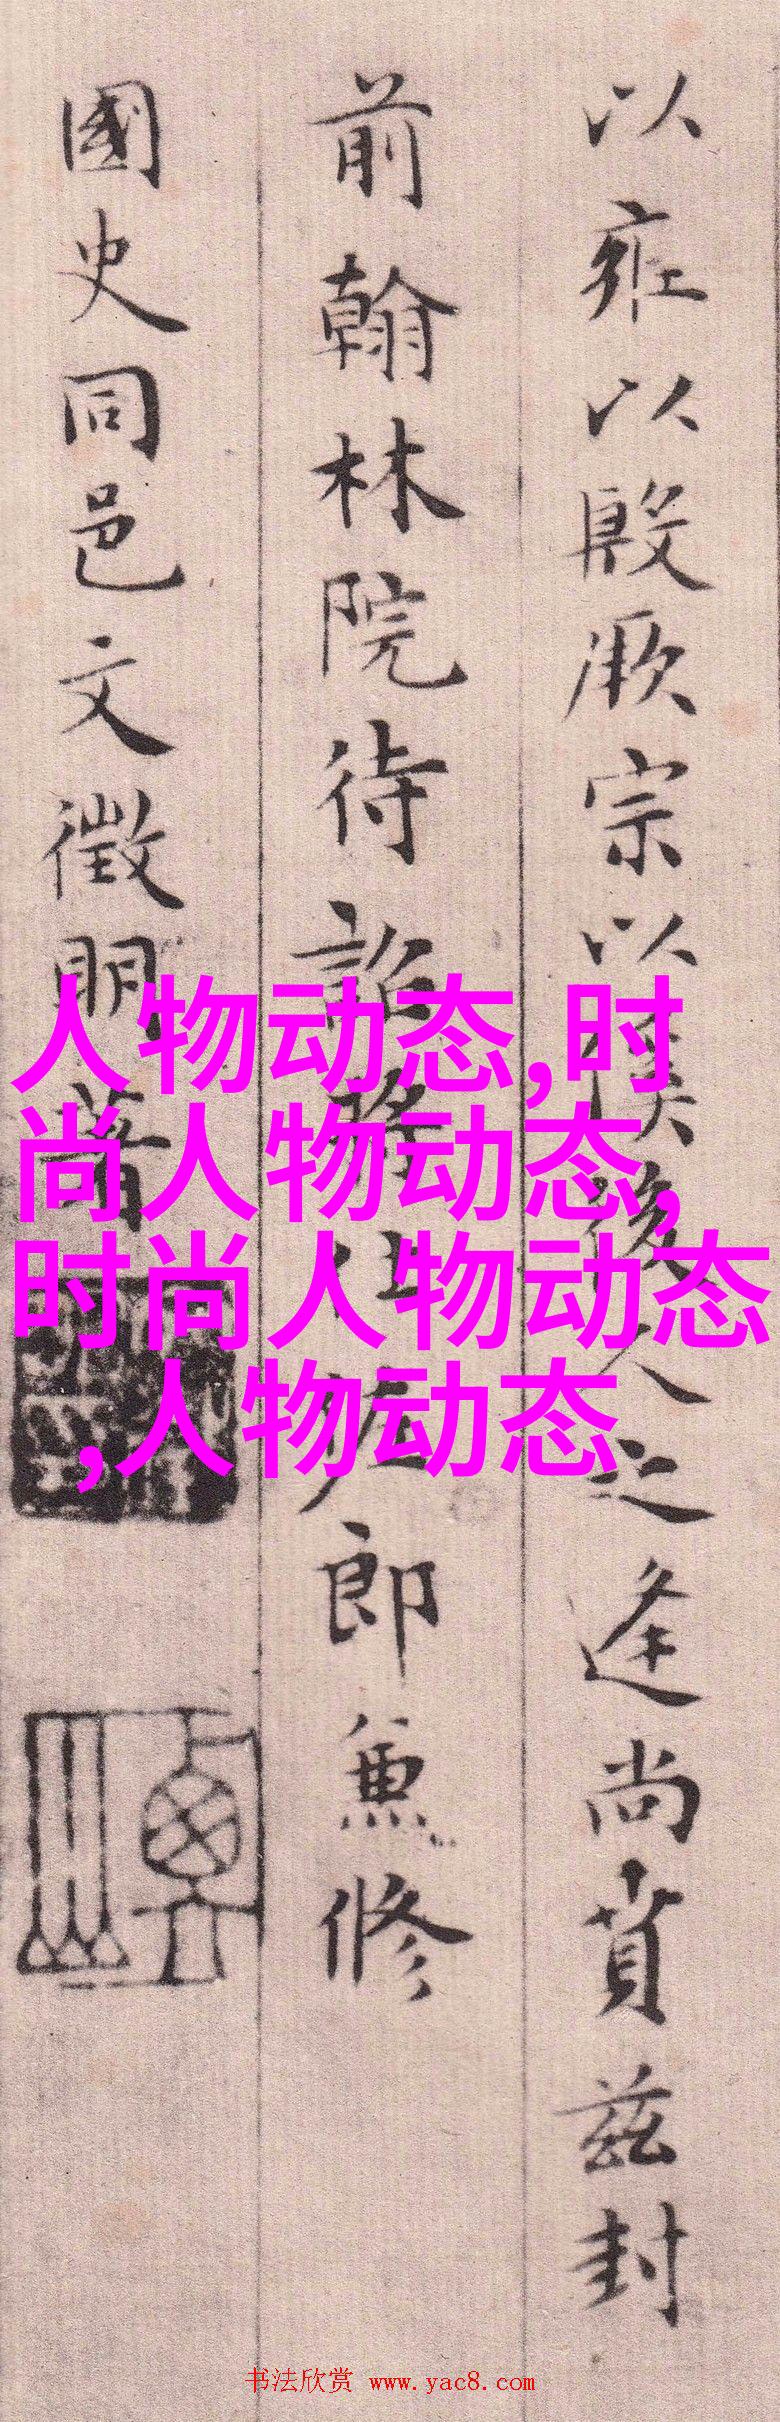 以雍以殷厥宗以俟後人之逢尚賁茲封
前翰林院待詔將仕佐郎兼修
國史同邑文徵明著
人物动态,时
尚人物动态,
时尚人物动态
,人物动态
书法欣赏 www.yac8.com